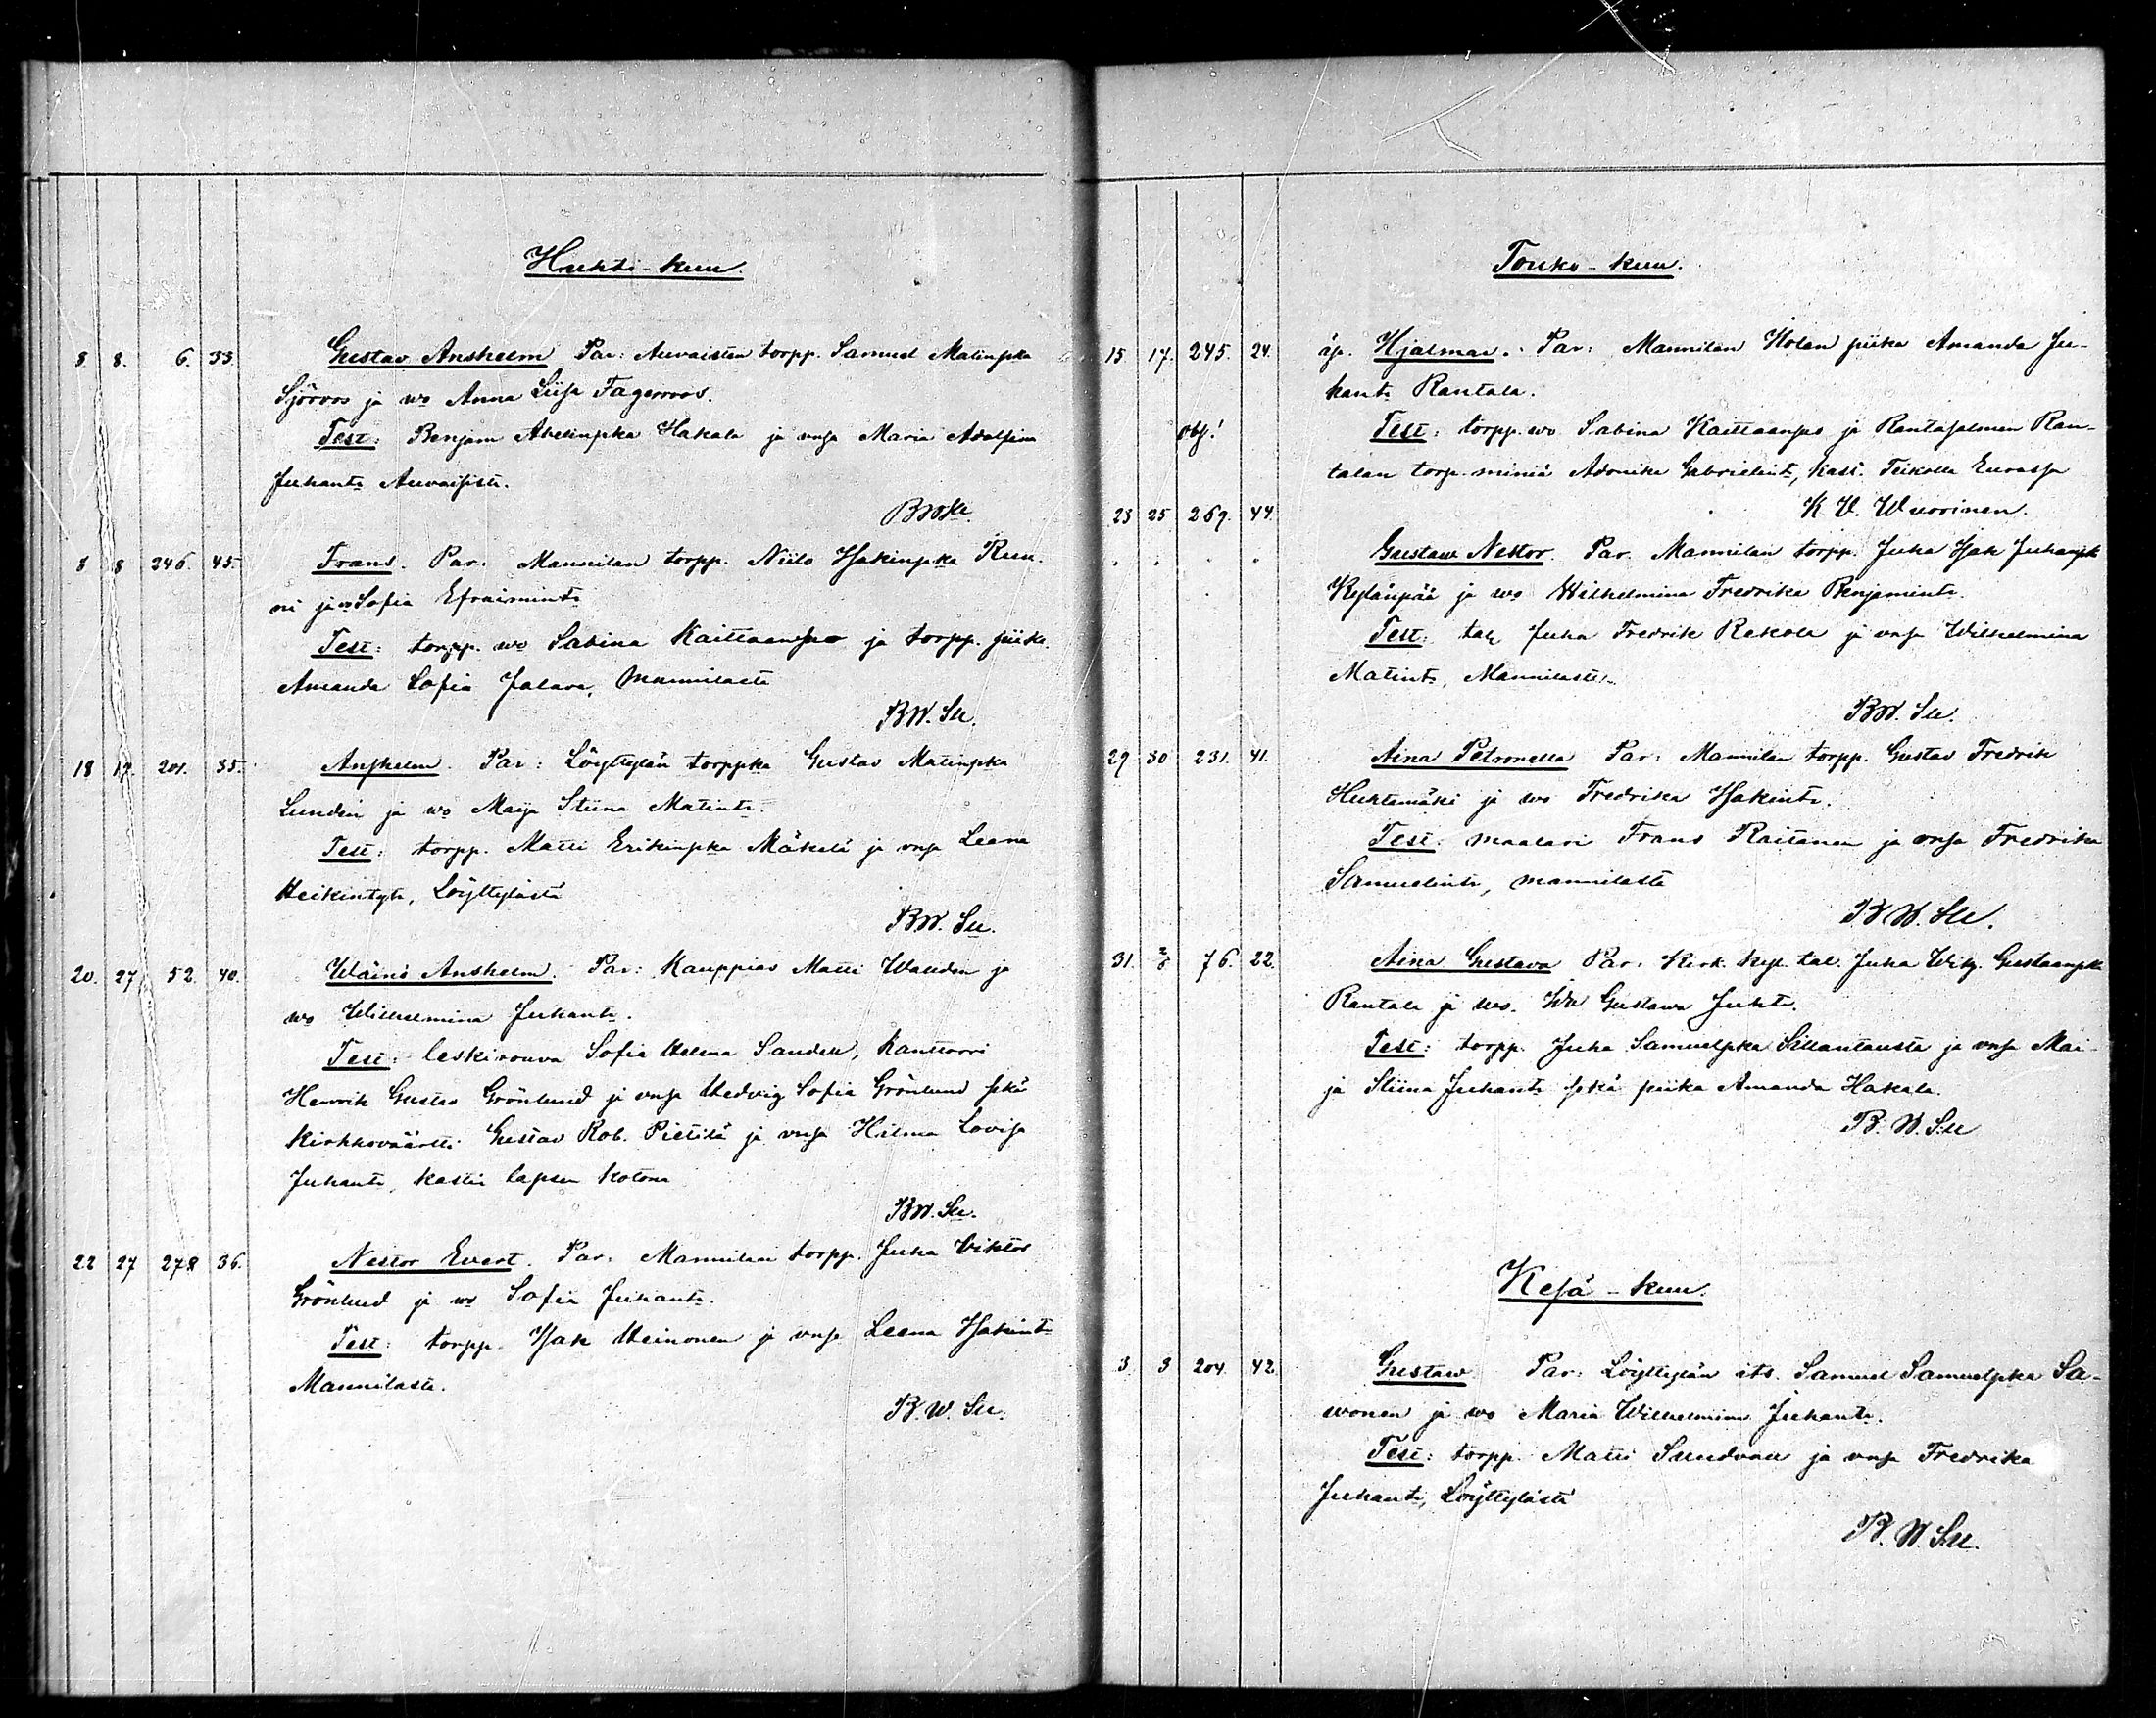 Huhti-kuu.
8. 8. 6. 33. Gustav Anshelm Par: Auvaisten torpp. Samuel Matinpka
Sjöroos ja wo Anna Liisa Fagerroos.
Test: Benjam Abelinpka Hakala ja vmsa Maria Adolfina
Juhant: Auvaisista.
8 8 246. 45. Frans. Par. Mannilan torpp. Niilo Isakinpka Ruu-
ni ja wo Sofia Efraimint:
Test: torpp. wo Sabina Kaittaanpää ja torpp. piika
Amanda Sofia Jalava, Mannilasta
BW. Su.
18 19. 201. 35. Anshelm. Par: Löyttylän torppka Gustav Matinpka
Lundén ja wo Maija Stiina Matint:
Test: torpp. Matti Erikinpka Mäkelä ja vmsa Leena
Heikintytr, Löyttylästä
BW. Su.
20. 27 52. 40. Wäinö Anshelm. Par: Kauppias Matti Wandén ja
wo Wilhelmina Juhant:
Test: leskirouva Sofia Helena Sandell, kanttoori
Henrik Gustav Grönlund ja vmsa Hedvig Sofia Grönlund sekä
kirkkoväärtti Gustav Rob. Pietilä ja vmsa Hilma Lovisa
Juhant:, kastoi lapsen kotona
BW. Su.
22 27 278 36. Nestor Evert. Par: Mannilan torpp. Juha Viktor
Grönlund ja wo Sofia Juhant:
Test: torpp. Isak Heinonen ja vmsa Leena Isakint:
Mannilasta.
B. W. Su.
Touko-kuu.
15. 17. 245. 24. äp. Hjalmar. Par: Mannilan Kolan piika Amanda Ju-
hant: Rantala.
obs! Test: torpp. wo Sabina Kaittaanpää ja Rantasalmen Ran-
talan torp. miniä Adonika Gabrielint:, Kast. Teikolla Eurassa
K. V. Wuorinen.
23 25 269. 44. Gustaw Nestor. Par. Mannilan torpp. Juha Isak Juhanpk
Kylänpää ja wo Wilhelmina Fredrika Benjamint:
Test: tal. Juha Fredrik Rekola ja vmsa Wilhelmina
Matint:, Mannilasta.
BW. Su.
29 30 231. 41. Aina Petronella Par: Mannilan torpp. Gustav Fredrik
Huhtamäki ja wo Fredrika Isakint:
Test: maalari Frans Raitanen ja vmsa Fredrika
Samuelint:, Mannilasta
B. W. Su.
31. 76. 22. Aina Gustava Par: Kirk. kyl. tal. Juha Wilh. Gustaanpk
Rantala ja wo. Ida Gustawa Juht.
Test: torpp. Juha Samuelpka Sillantausta ja vmsa Mai-
ja Stiina Juhant: sekä piika Amanda Hakala.
B. W. Su
Kesä-kuu.
3. 3 204. 42. Gustaw Par: Löyttylän its. Samuel Samuelpka Sa-
wonen ja wo Maria Wilhelmina Juhant:
Test: torpp. Matti Sundvall ja vmsa Fredrika
Juhant:, Löyttylästä
B. W. Su.